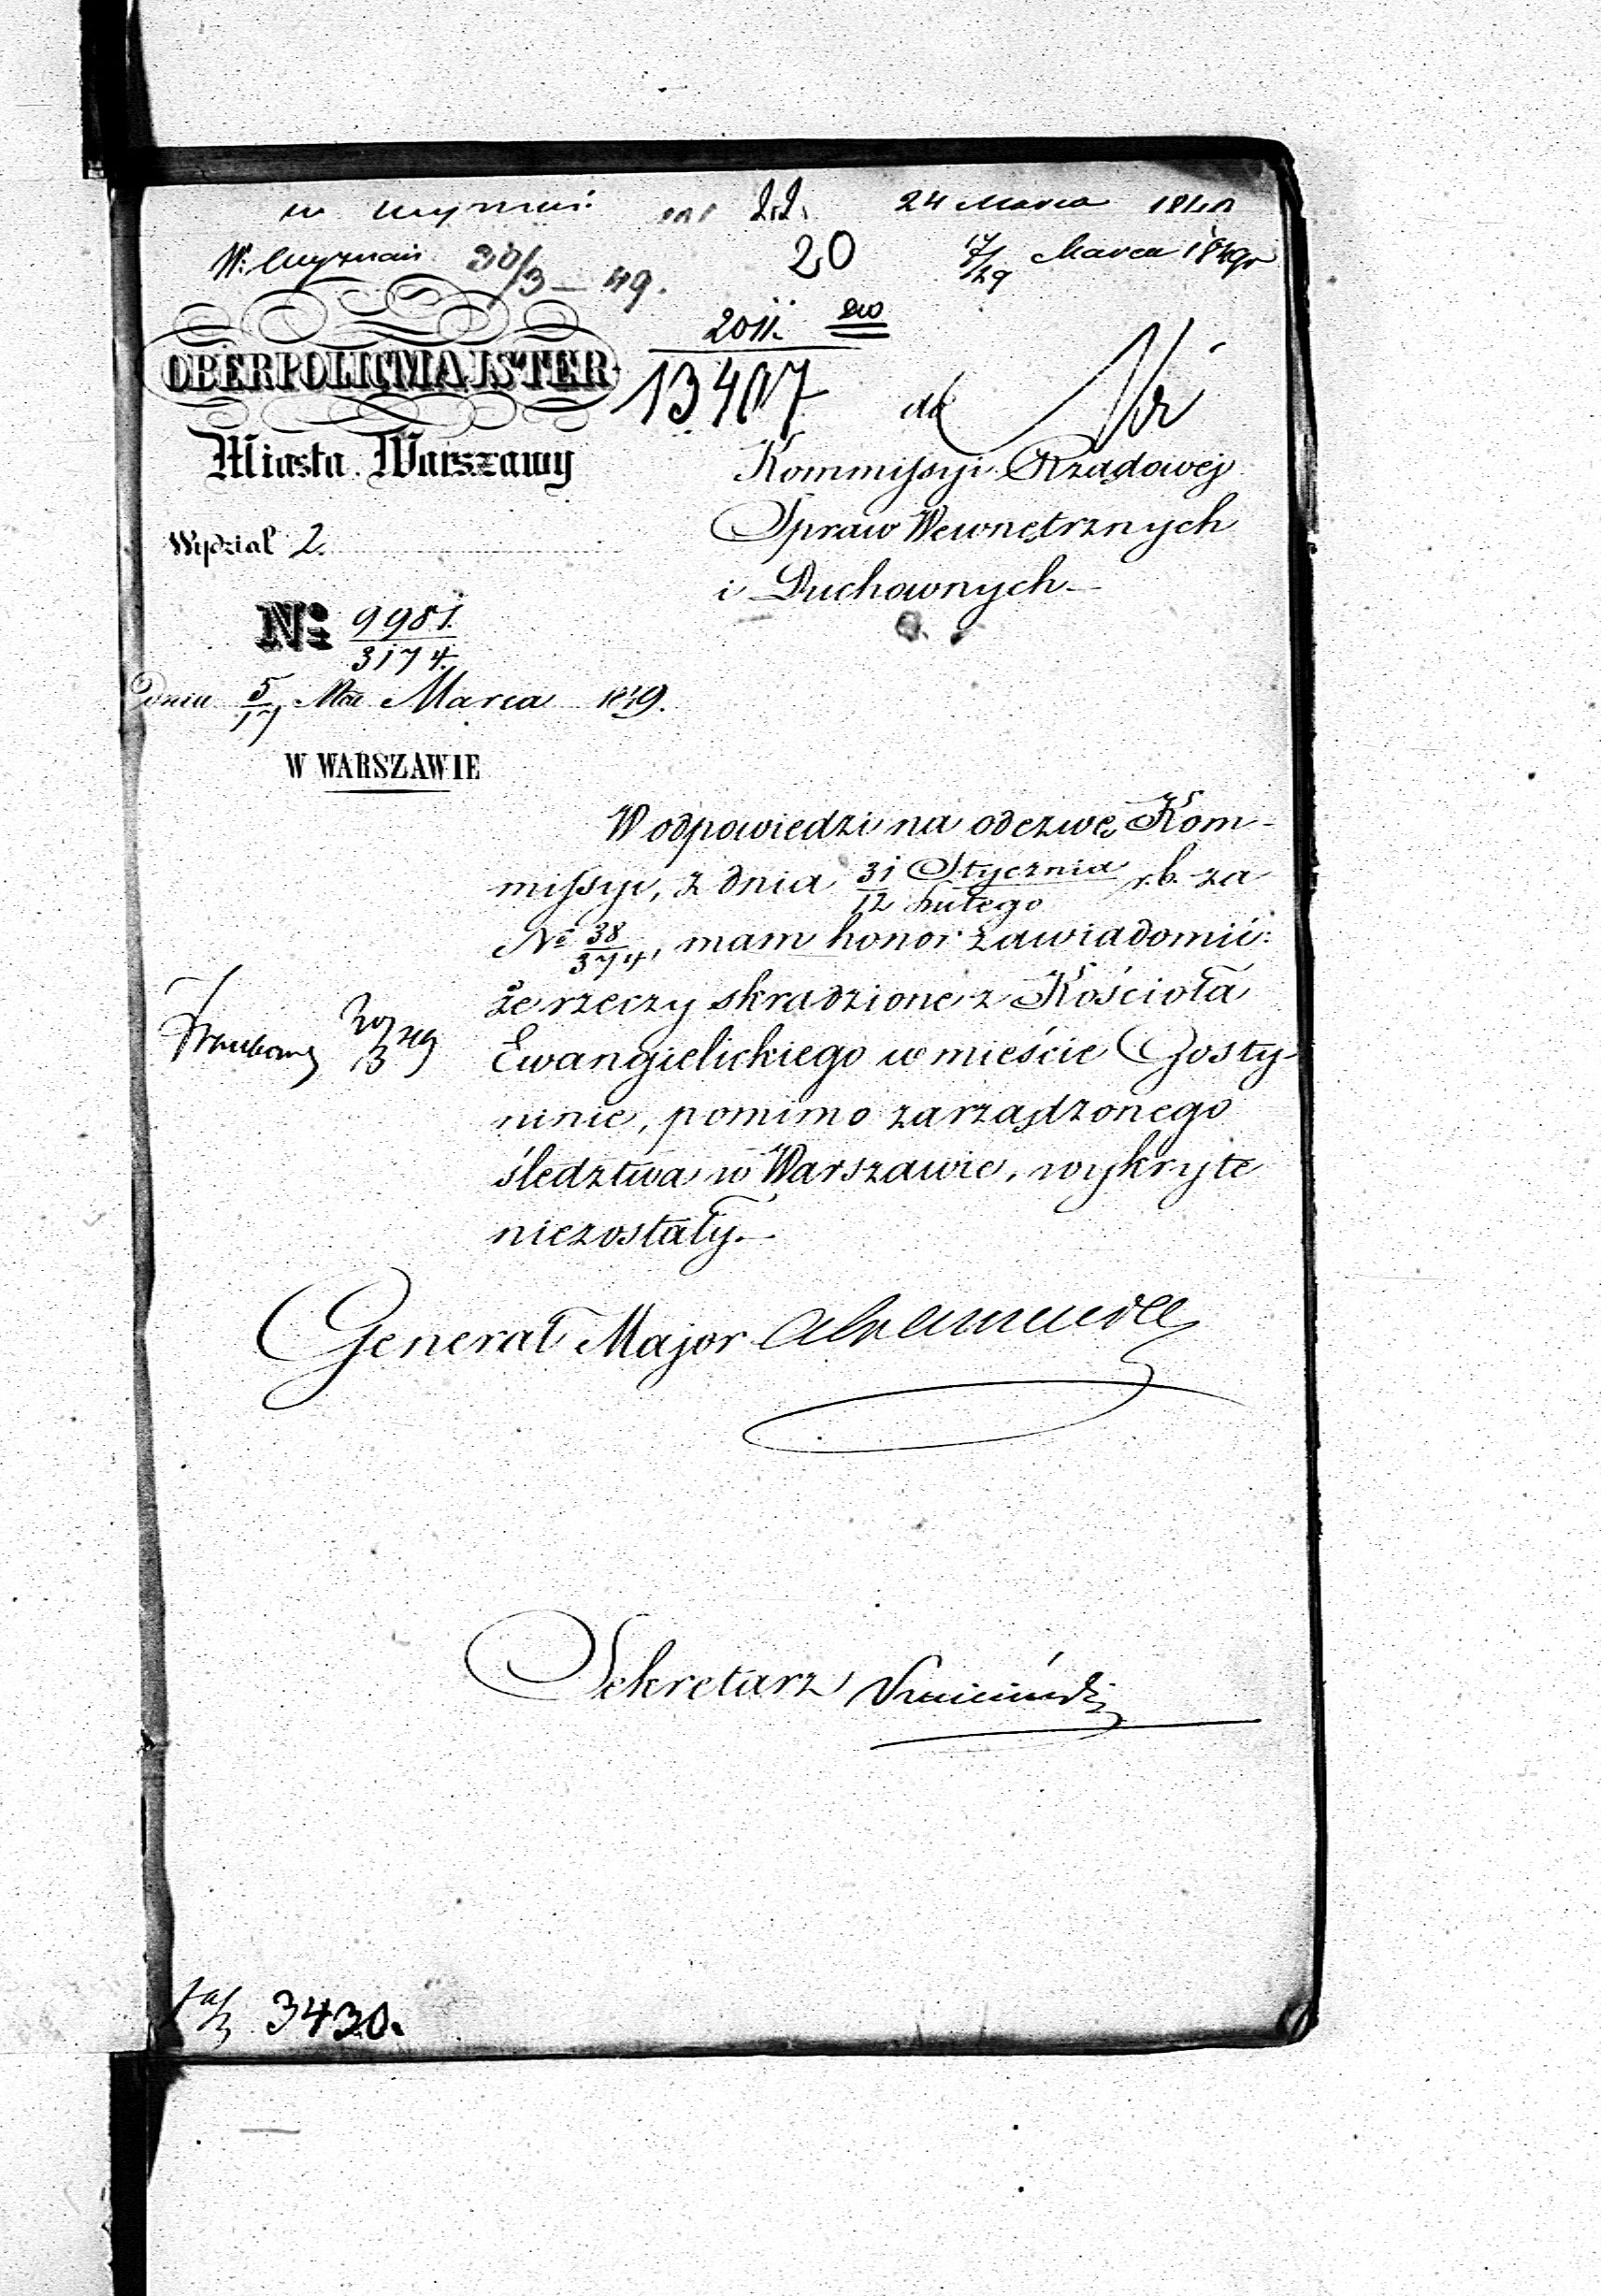 22. 24 Marca
W: Wyznań 30/3 – 49. 20 17/29 Marca 1849 r
2011.
OBERPOLICMAJSTER 13407
Miasta Warszawy
do
Kommissyi Rządowéj
Spraw Wewnętrznych
i Duchownych
Wydział 2.
№ 9981/3174.
Dnia 5/17 Mca Marca 1849.
W WARSZAWIE
W odpowiedzi na odezwę Kom-
missyi, z dnia 31 Stycznia/12 Lutego r.b. za
№ 38/374, mam honor zawiadomić:
że rzeczy skradzione z Kościoła
Ewangielickiego w mieście Gosty-
ninie, pomimo zarządzonego
śledztwa w Warszawie, wykryte
niezostały.
Generał Major
Sekretarz
3430.